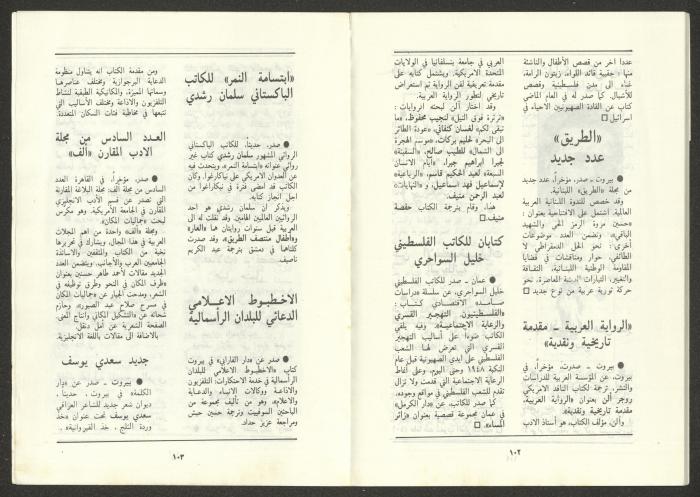 عددا آخر من قصص الأطفال والناشئة
منها: حقيبة قائد اللواء، زيتون الرامة،
غناء الى مدن فلسطينية وقصص
للأشبال. كما صدر له في العام الماضي
كتاب عن القادة الصهيونيين الأحياء في
اسرائيل □
«الطريق»
عدد جديد
● بيروت ـ صدر، مؤخراً، عدد جديد
من مجلة «الطريق» اللبنانية.
وقد خصص للندوة اللبنانية العربية
العالمية. اشتمل على الافتتاحية بعنوان:
«حسين مروة الرمز الحي والشهيد
الباقي». وتضمن العدد موضوعات
أخرى: نحو الحل الديمقراطي لا
الطائفي، حوار ومناقشات في قضايا
المقاومة الوطنية اللبنانية، الثقافة
والتغيير، التيارات المعاصرة، نحو
حركة ثورية عربية من نوع جديد □
«الرواية العربية ـ مقدمة
تاريخية ونقدية»
● بيروت ـ صدرت، مؤخراً، في
بيروت، عن المؤسسة العربية للدراسات
والنشر، ترجمة لكتاب الناقد الأمريكي
روجر ألن بعنوان «الرواية العربية،
مقدمة تاريخية ونقدية».
وألن، مؤلف الكتاب، هو أستاذ الأدب
العربي في جامعة بنسلفانيا في الولايات
المتحدة الامريكية. ويشتمل كتابه على
مقدمة تعريفية لفن الرواية ثم استعراض
تاريخي لتطور الرواية العربية.
وقد اختار ألن لبحثه الروايات:
«ثرثرة فوق النيل» لنجيب محفوظ، «ما
تبقى لكم» لغسان كنفاني، «عودة الطائر
الى البحر» لحليم بركات، «موسم الهجرة
الى الشمال» للطيب صالح، «السفينة»
لجبرا ابراهيم جبرا، «أيام الانسان
السبعة» لعبد الحكيم قاسم، «الرباعية»
لإسماعيل فهد اسماعيل، و«النهايات»
لعبد الرحمن منيف.
هذا، وقام بترجمة الكتاب حفصة
منيف □
كتابان للكاتب الفلسطيني
خليل السواحري
● عمان ـ صدر للكاتب الفلسطيني
خليل السواحري، عن سلسلة «دراسات
صامد الاقتصادي» كتاب:
«الفلسطينيون، التهجير القسري
والرعاية الاجتماعية». وفيه يلقي
الكاتب ضوءاً على أساليب التهجير
القسري التي تعرض لها الشعب
الفلسطيني على أيدي الصهيونية قبل عام
النكبة ١٩٤٨ وحتى اليوم، وعلى أنماط
الرعاية الاجتماعية التي قدمت ولا تزال
تقدم للشعب الفلسطيني في مواقع وجوده.
كما صدر للكاتب، عن «دار الكرمل»
في عمان مجموعة قصصية بعنوان «زائر
المساء». □
١٠٢
«ابتسامة النمر» للكاتب
الباكستاني سلمان رشدي
● صدر، حديثاً، للكاتب الباكستاني
الروائي المشهور سلمان رشدي كتاب غير
روائي عنوانه «ابتسامة النمر»، ويتحدث فيه
عن العدوان الأمريكي على نيكاراغوا. وكان
الكاتب قد أمضى فترة في نيكاراغوا من
أجل انجاز كتابه.
ويذكر ان سلمان رشدي هو أحد
الروائيين العالميين الهامين. وقد نقلت له الى
العربية قبل سنوات روايتان هما «العار»
و«أطفال منتصف الطريق»، وقد صدرت
كلتاهما في دمشق بترجمة عبد الكريم
ناصيف.
الأخطبوط الاعلامي
الدعائي للبلدان الرأسمالية
● صدر عن «دار الفارابي» في بيروت
كتاب «الأخطبوط الاعلامي للبلدان
الرأسمالية في خدمة الاحتكارات: التلفزيون
والاذاعة ووكالات الأنباء والدعاية
والاعلام»، وهو من تأليف مجموعة من
الباحثين السوفييت وترجمة حسين حبش
ومراجعة عزيز حداد.
ومن مقدمة الكتاب أنه يتناول منظومة
الدعاية البرجوازية ومختلف عناصرها
وسماتها المميزة، والميكانيكية الطبقية لنشاط
التلفزيون والاذاعة ومختلف الأساليب التي
تتبعها في مخاطبة فئات السكان المتعددة.
العدد السادس من مجلة
الأدب المقارن «ألف»
● صدر، مؤخراً، في القاهرة العدد
السادس من مجلة ألف: مجلة البلاغة المقارنة
التي تصدر عن قسم الأدب الانجليزي
المقارن في الجامعة الأمريكية. وهو مكرس
لبحث «جماليات المكان».
ومجلة «ألف» واحدة من أهم المجلات
العربية في هذا المجال، ويشارك في تحريرها
نخبة من الكتاب والمثقفين والأساتذة
الجامعيين العرب والأجانب. ويتضمن العدد
الجديد مقالات لأحمد طاهر حسنين بعنوان
«ظرف المكان في النحو وطرق توظيفه في
الشعر، ومدحت الجيار عن «جماليات المكان
في مسرح صلاح عبد الصبور»، وحازم
شحاته عن «التشكيل المكاني وانتاج المعنى.
الصفحة الشعرية عن أمل دنقل».
بالاضافة الى مقالات باللغة الانجليزية.
جديد سعدي يوسف
● بيروت ـ صدر عن «دار
الكلمة» في بيروت، حديثاً،
ديوان شعر جديد للشاعر العراقي
سعدي يوسف تحت عنوان «خذ
وردة الثلج، خذ القيروانية».
١٠٣